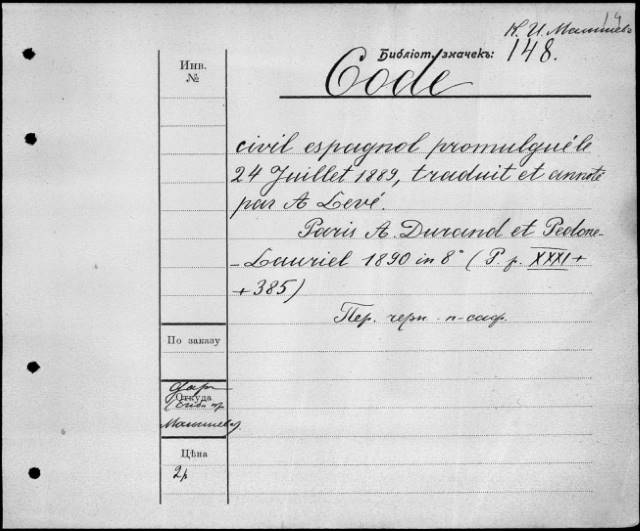 14
Библіот. значекъ:
148.
Инв.
№
Code
civil espagnol promulgué le
24 Juillet 1889, traduit et annoté
par A Levé.
Paris A. Durand et Pedone-
-Lauriel 1890 in 8° (P. p. XXXI +
+ 385)
Пер. черн. п-саф.
По заказу
Дар
Откуда
Цѣна
2р